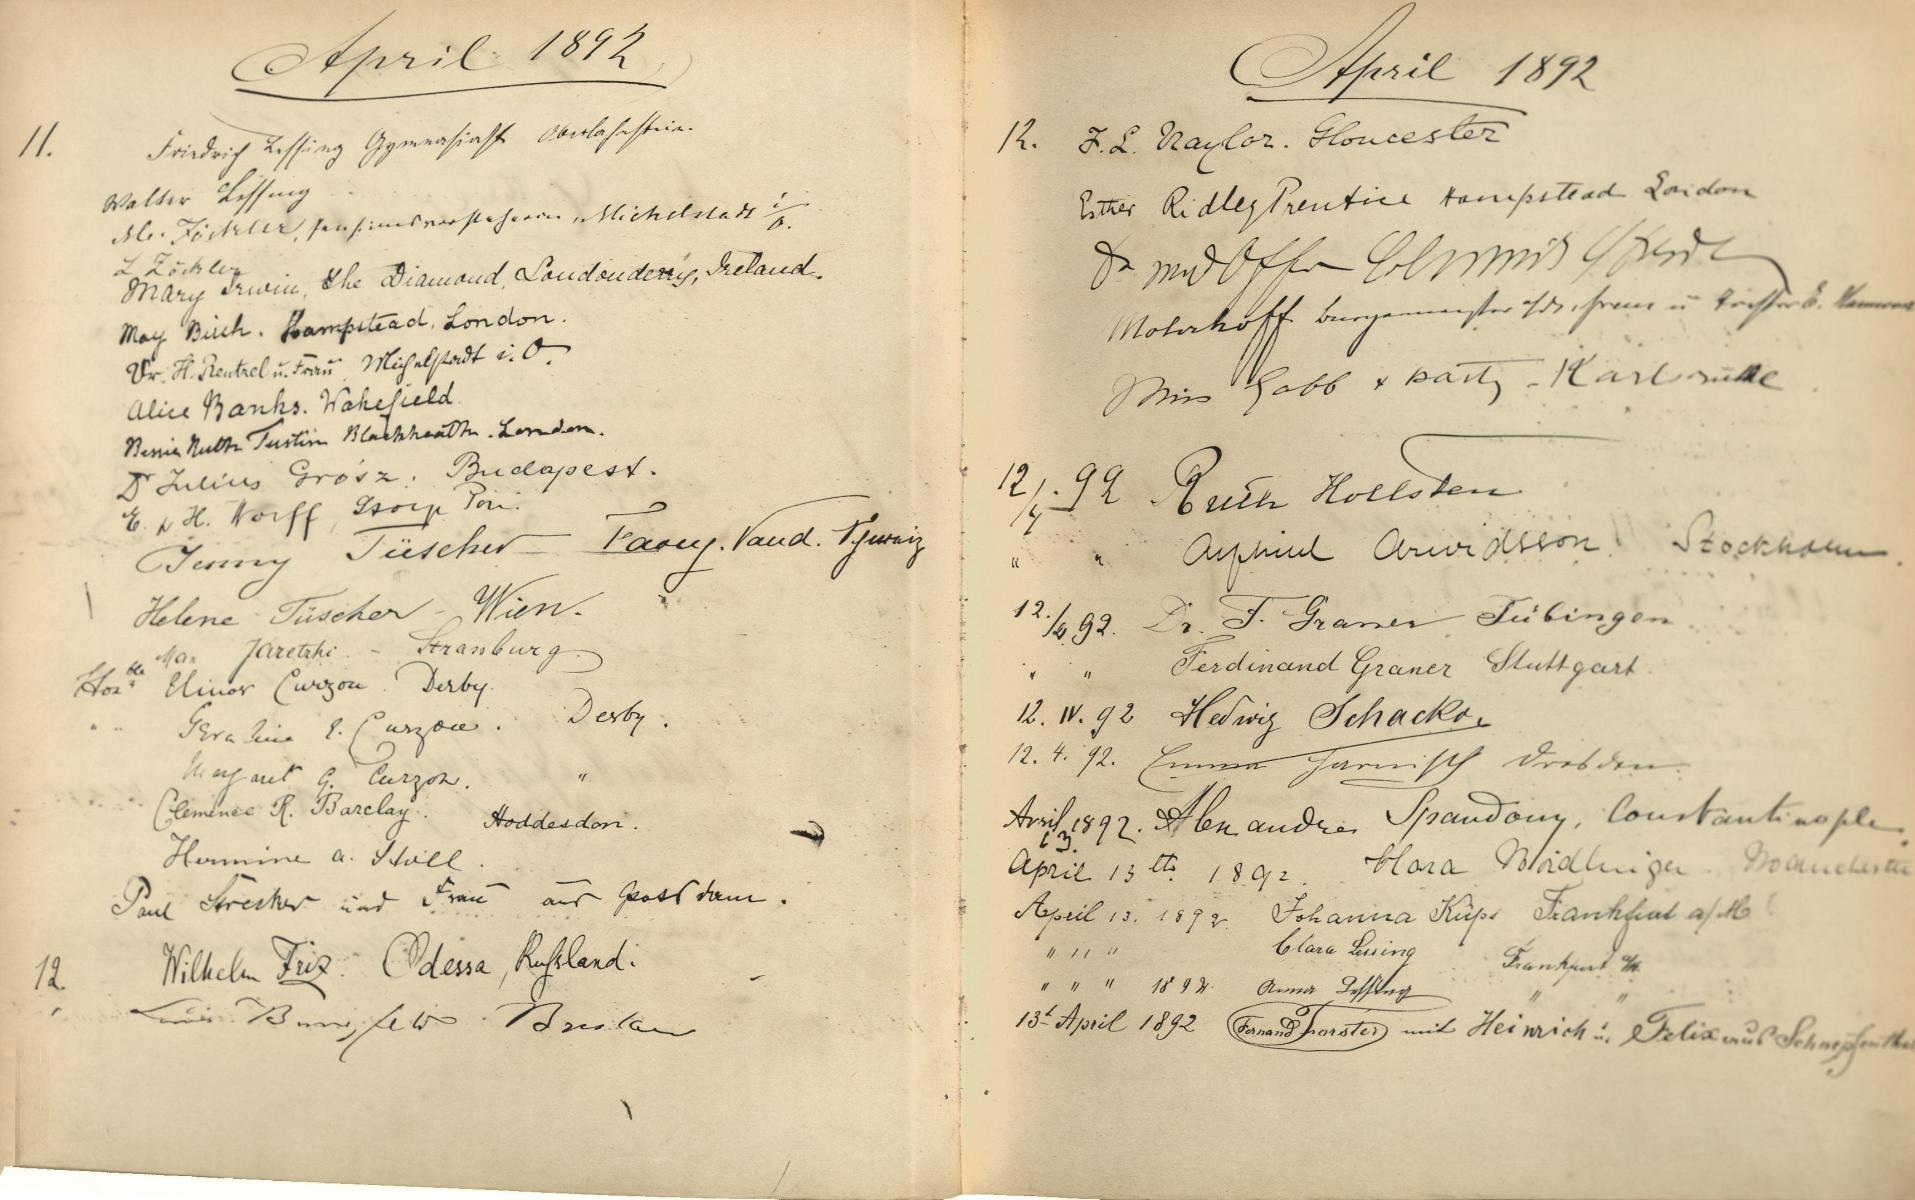 April 1892
11.
Friedrich Lessing Gymnasiast Oberlahnstein.
Walter Lessing
Michelstadt i/O.
L Zöckler
Mary Irwin, The Diamond, Londonderry, Ireland.
May Birch. Hampstead, London.
Dr. H. Rentzel u. Frau Michelstadt i. O.
Alice Banks. Wakefield
Bessie Ruth Tustin Blackheath. London.
Dr Julius Grósz. Budapest.
E. H. Worff
Jenny Tüscher Faoug. Vaud. Schweiz
Helene Tüscher – Wien.
Max Jaretzki – Strassburg
Honble Elinor Curzon. Derby.
" " Geraline E. Curzon. Derby.
Margaret G. Curzon. "
Clemence R. Barclay. Hoddesdon.
Hermine a. Stoll.
Paul Strecker und Frau aus Potsdam.
12. Wilhelm Friz. Odessa, Russland.
" Louis Breslau
April 1892
12. F. L. Naylor. Gloucester
Esther Ridley Prentice Hampstead London
Dr med
Burgermeister
Miss Gabb & party – Karlsruhe
12/4. 92 Ruth Hollsten
" " Arvidsson Stockholm.
12./4 92. Dr. F. Graner Tübingen
" " Ferdinand Graner Stuttgart.
12. IV. 92 Hedwig Schacko.
12. 4. 92. Emma Harnisch Dresden.
Avril 13. 1892. Alexandre Spandony, Constantinople.
April 13th 1892. Clara Manchester
April 13. 1892. Johanna Küps Frankfurt a/M
" " " Clara Lessing Frankfurt a/M.
" " " 1892 Anna Lessing " "
13t April 1892 Fernand Forster mit Heinrich u. Felix aus Schnepfenthal